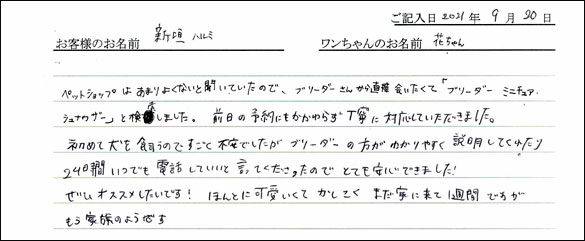 ご記入日 2021 年 9 月 20 日
お客様のお名前 新垣 ハルミ ワンちゃんのお名前 花ちゃん
ペットショップはあまりよくないと聞いていたので、ブリーダーさんから直接会いたくて「ブリーダー ミニチュア
シュナウザー」と検索しました。 前日の予約にもかかわらず丁寧に対応していただきました。
初めて犬を飼うのですごく不安でしたがブリーダーの方がわかりやすく説明してくれたり
24日間いつでも電話していいと言ってくださったのでとても安心できました!
ぜひオススメしたいです! ほんとに可愛いくてかしこく まだ家に来て1週間ですが
もう家族のようです